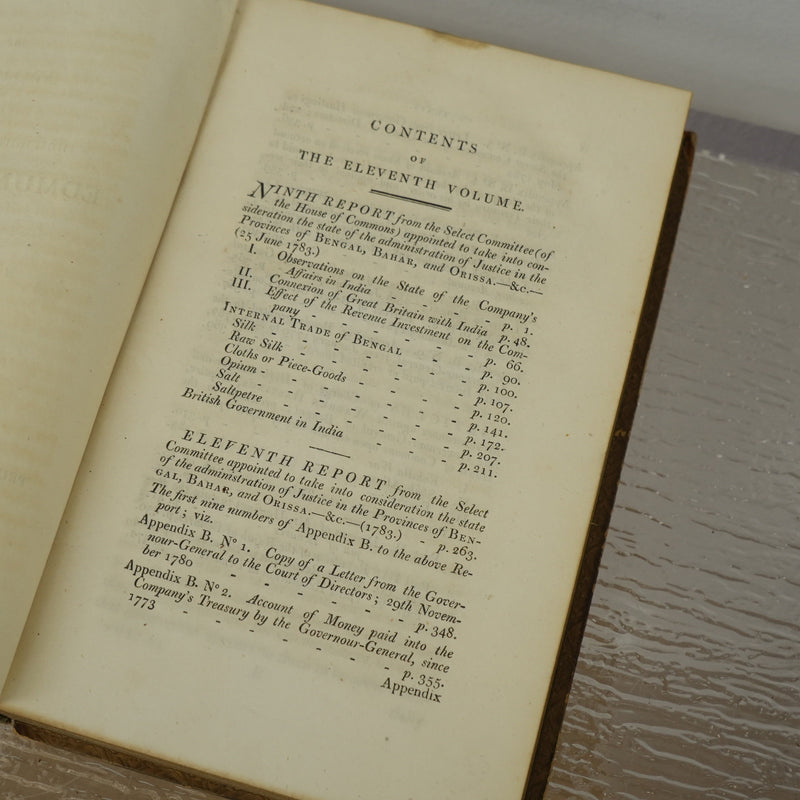 CONTENTS
OF
THE ELEVENTH VOLUME.
NINTH REPORT from the Select Committee (of
the House of Commons) appointed to take into con-
sideration the state of the administration of Justice in the
Provinces of BENGAL, BAHAR, and ORISSA.—&c.—
(25 June 1783.)
I. Observations on the State of the Company's
Affairs in India - - - - p. 1.
II. Connexion of Great Britain with India p. 48.
III. Effect of the Revenue Investment on the Com-
pany - - - - - - p. 66.
INTERNAL TRADE OF BENGAL - - p. 90.
Silk - - - - - - p. 100.
Raw Silk - - - - - - p. 107.
Cloths or Piece-Goods - - - - p. 120.
Opium - - - - - - p. 141.
Salt - - - - - - p. 172.
Saltpetre - - - - - - p. 207.
British Government in India - - - p. 211.
ELEVENTH REPORT from the Select
Committee appointed to take into consideration the state
of the administration of Justice in the Provinces of BEN-
GAL, BAHAR, and ORISSA.—&c.—(1783.) - p. 263.
The first nine numbers of Appendix B. to the above Re-
port; viz.
Appendix B. Nº 1. Copy of a Letter from the Gover-
nour-General to the Court of Directors; 29th Novem-
ber 1780 - - - - - - p. 348.
Appendix B. Nº 2. Account of Money paid into the
Company's Treasury by the Governour-General, since
1773 - - - - - - p. 355.
Appendix